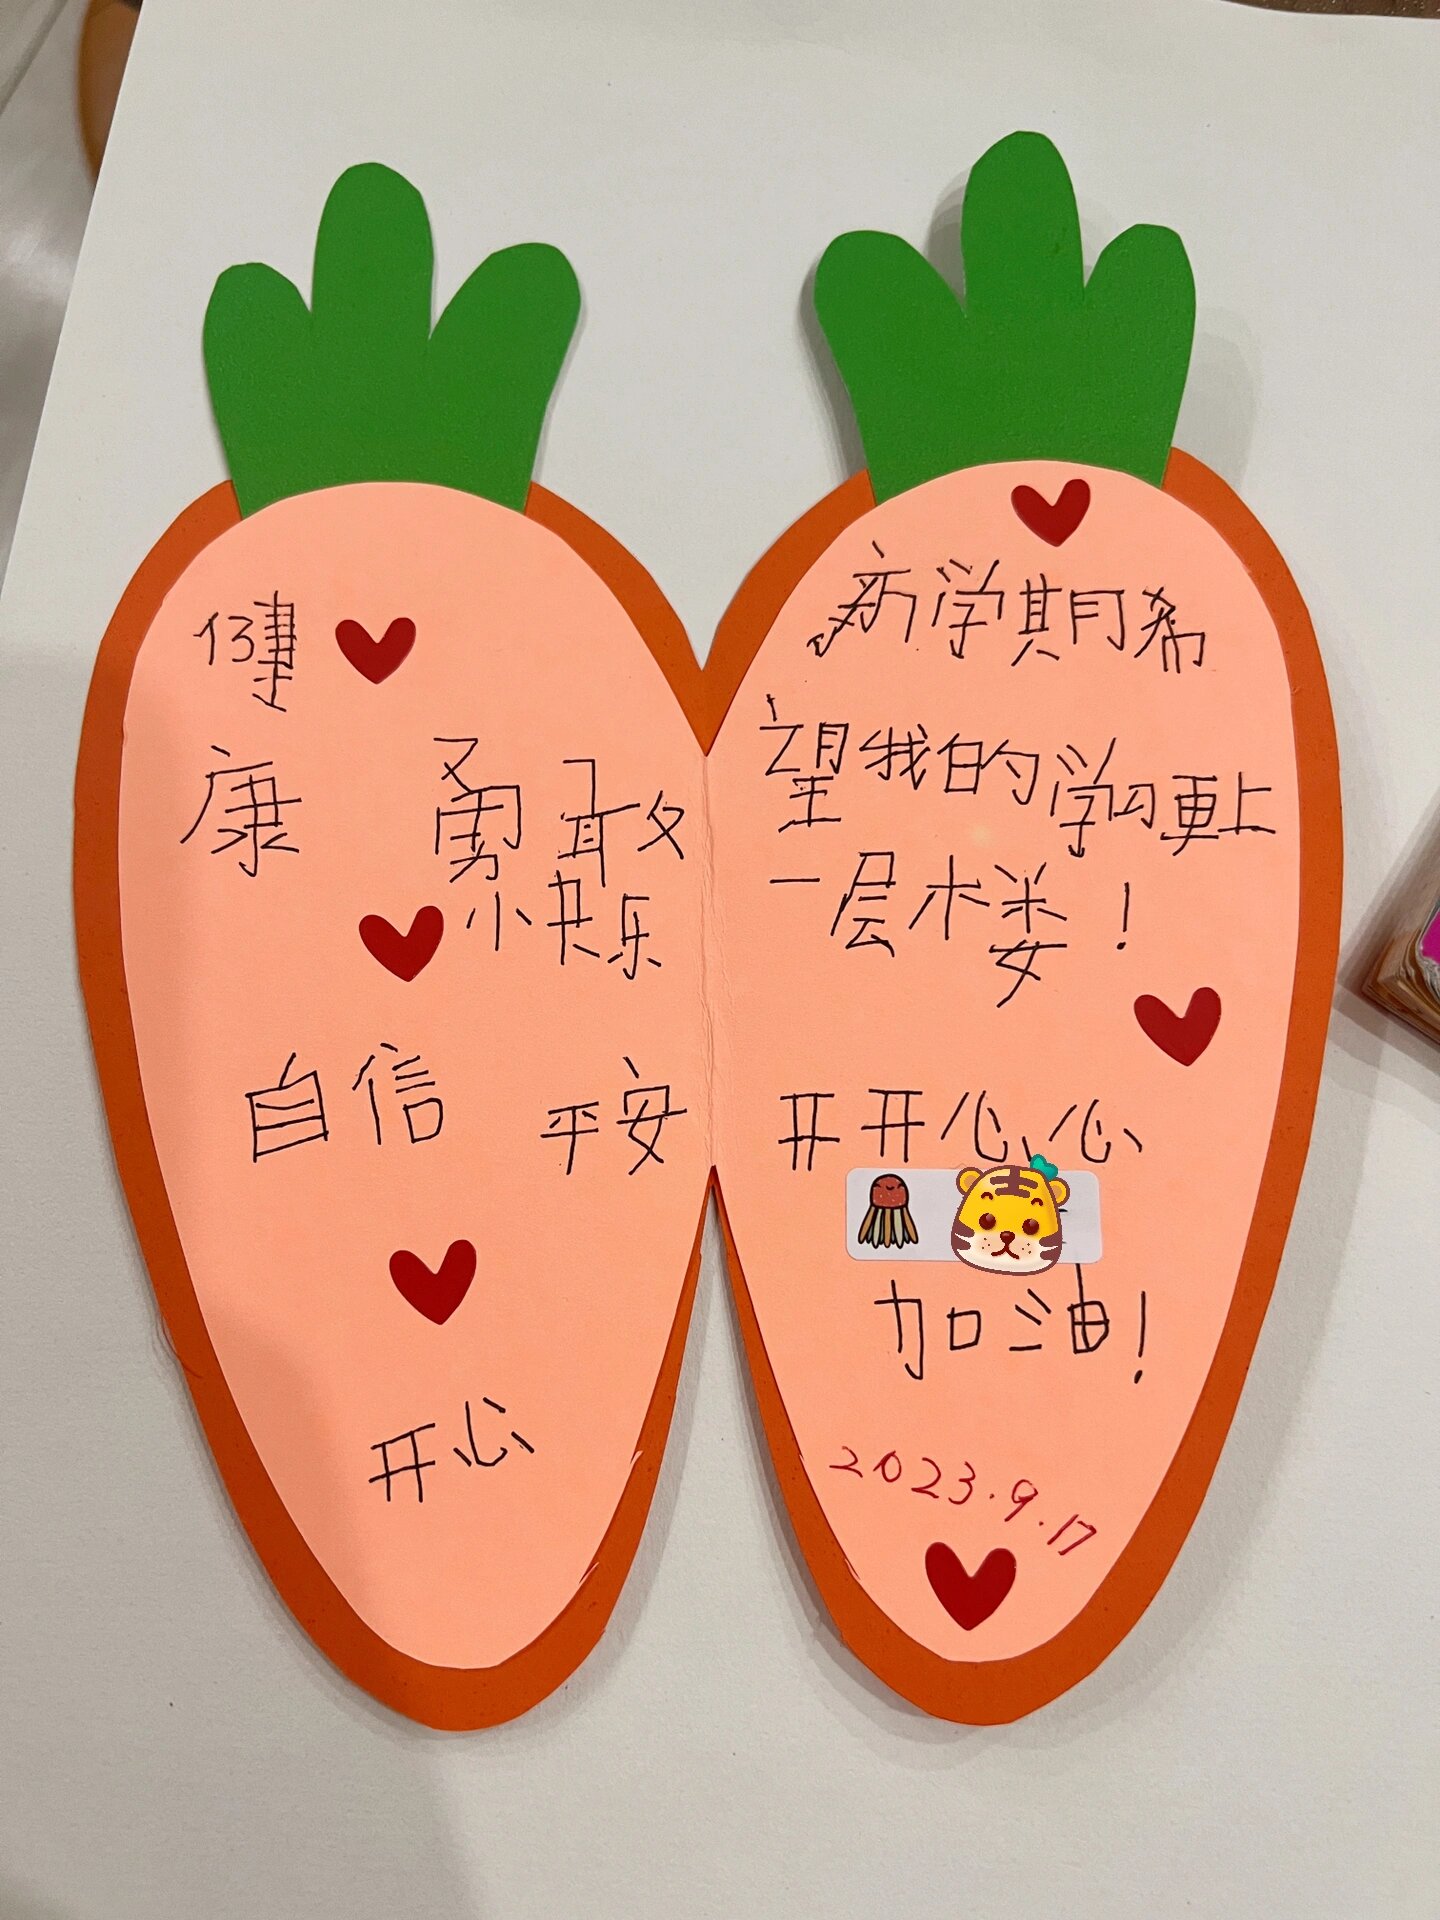 健康
勇敢
快乐
自信
平安
开心
新学期希
望我的学习更上
一层楼！
开开心心
加油！
2023.9.17